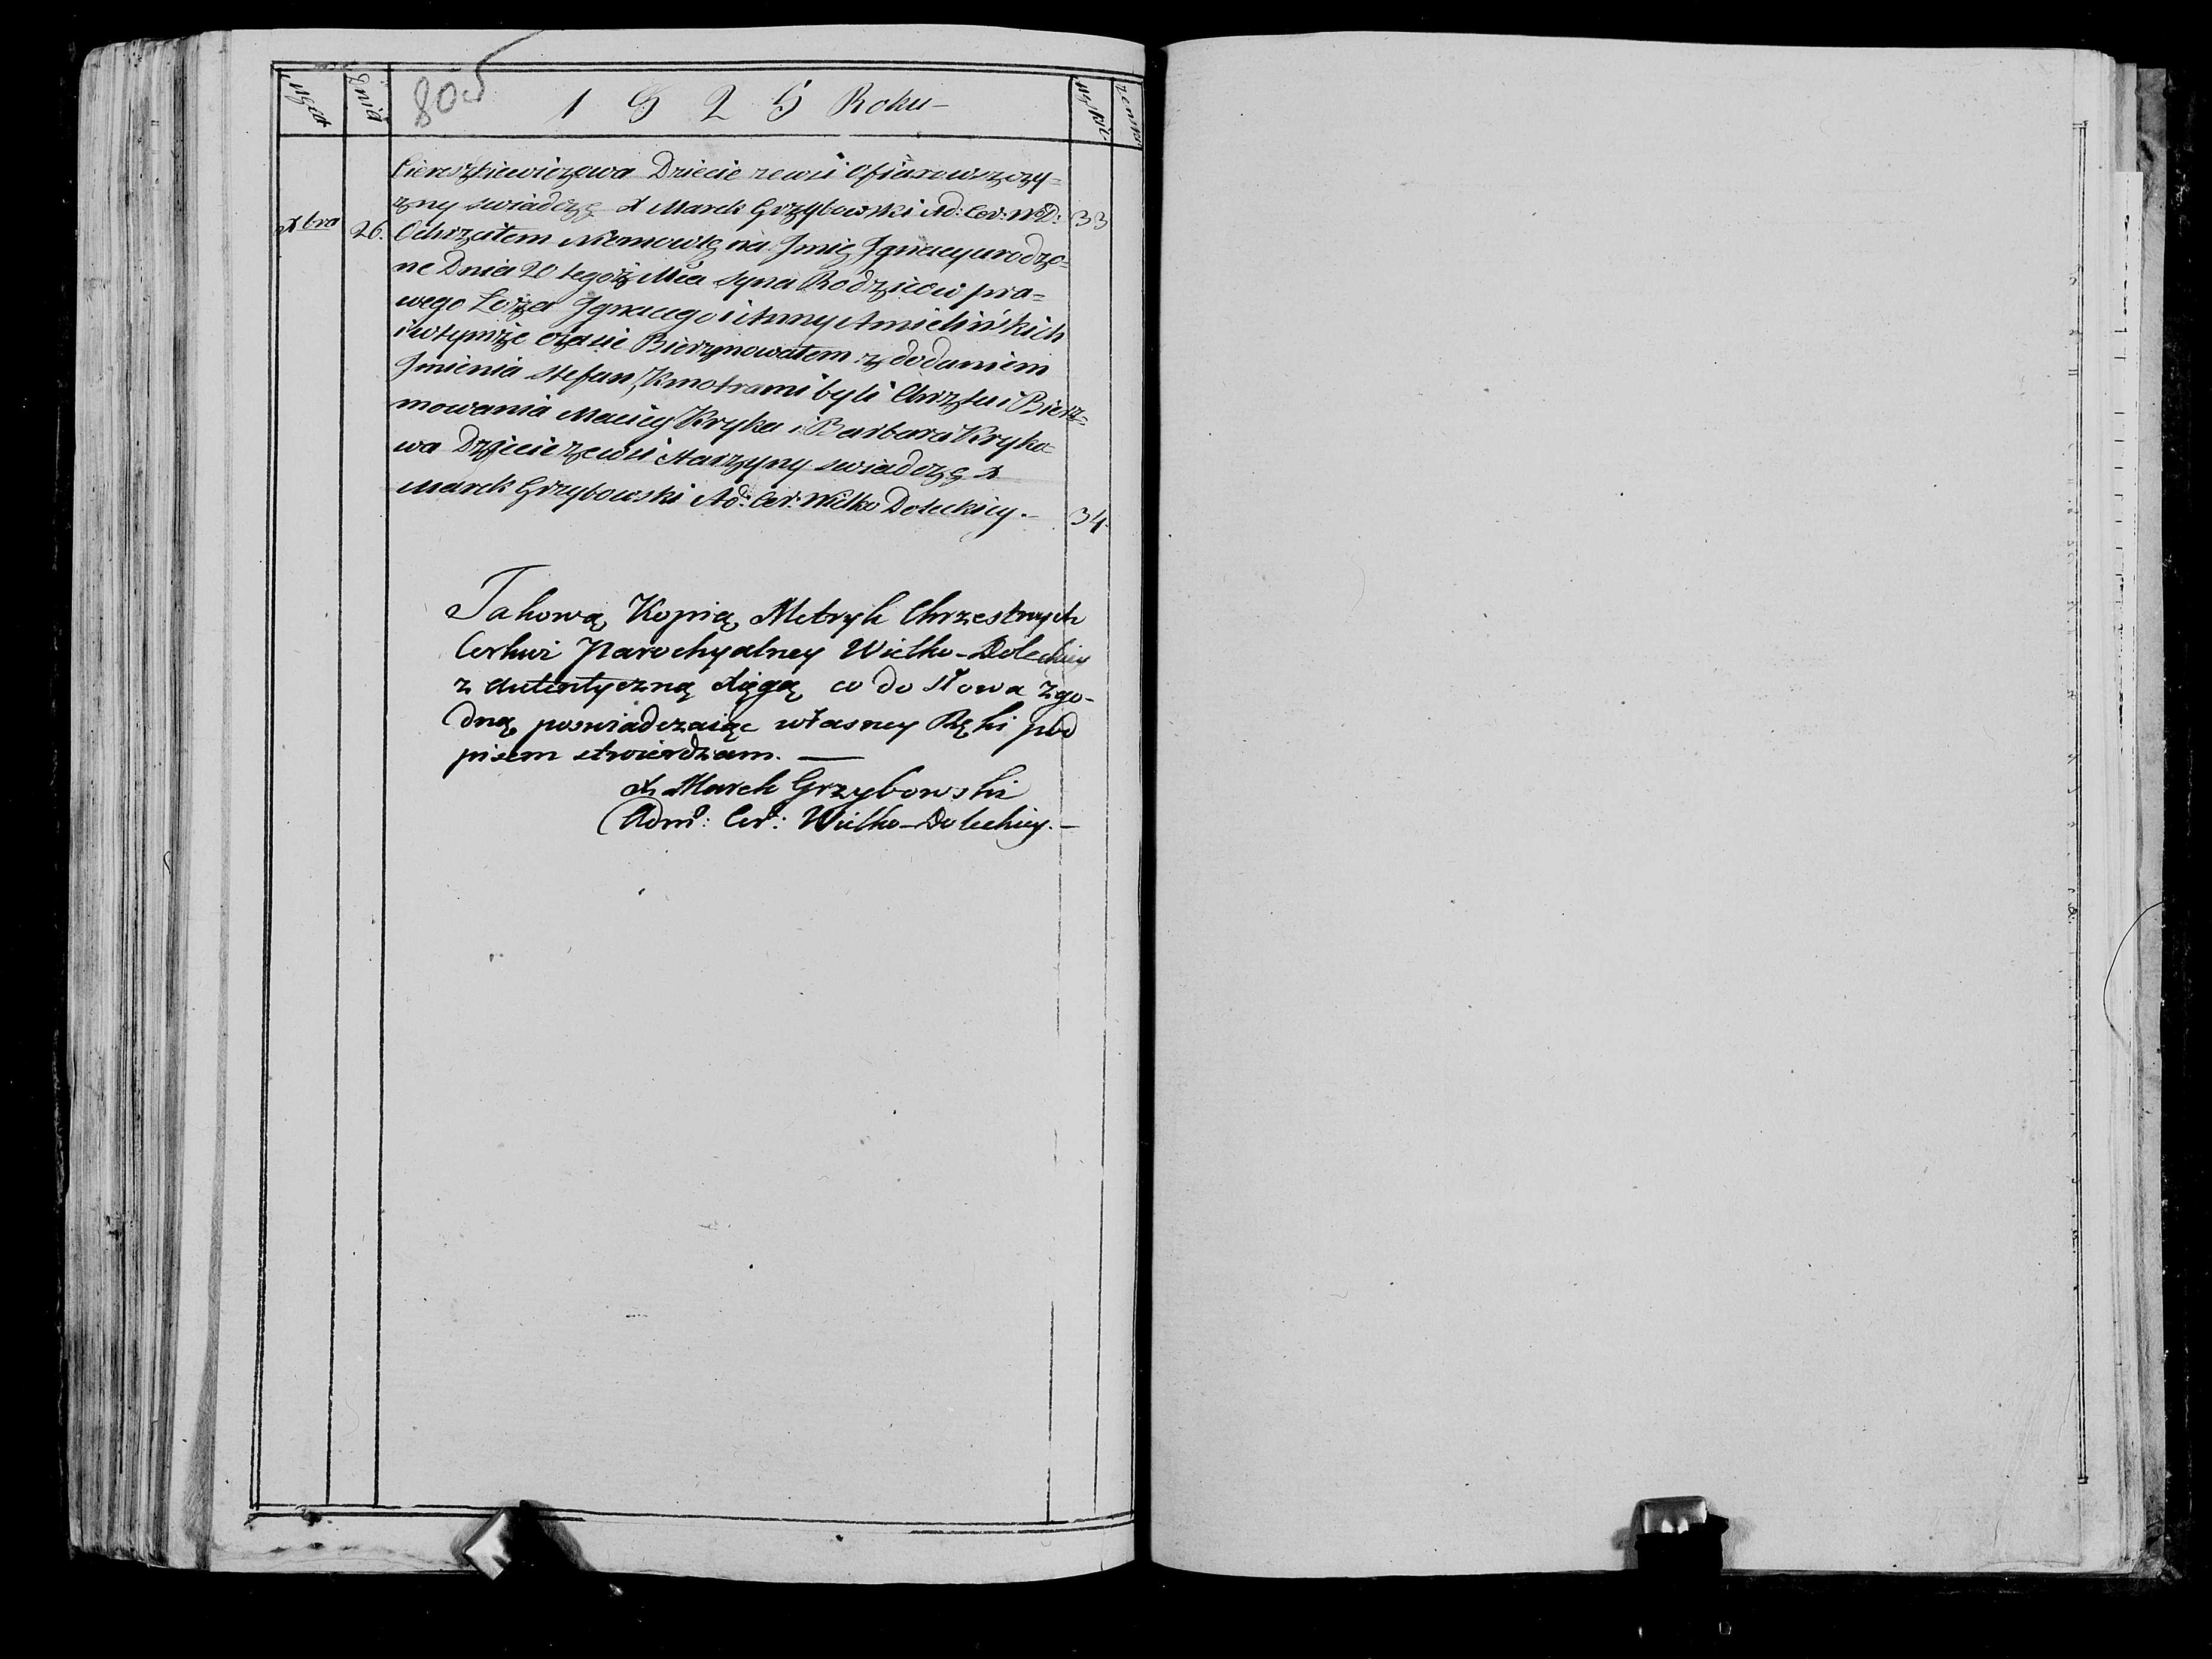 805
1825 Roku
Dnia
Ciereszkiewiczowa Dziecie zewsi Ofiarowszczy=
zny swiadczę X Marek Grzybowski Ad: Cer: W:D: 33
Xbra 26. Ochrzciłem Niemowlę na Jmię Jgnacy urodzo=
ne Dnia 20 tegoż Mca syna Rodziców pra=
wego Łoża Jgnacego i Anny Amielińskich
i wtymże czasie Bierzmowałem z dodaniem
Jmienia Stefan, Kmotrami byli Chrztu i Bierz=
mowania Maciey Kryka i Barbara Kryko=
wa Dziecie zewsi Starzyny swiadczę X
Marek Grzybowski Ad: Cer: Wielko Doleckiey. 34.
Takową Kopią Metryk Chrzestnych
Cerkwi Parochyalney Wielko-Doleckiey
z autentyczną xięgą co do słowa zgo-
dną poswiadczaiąc własney Ręki pod
pisem stwierdzam.
X Marek Grzybowski
Adm: Cer: Wielko-Doleckiey.